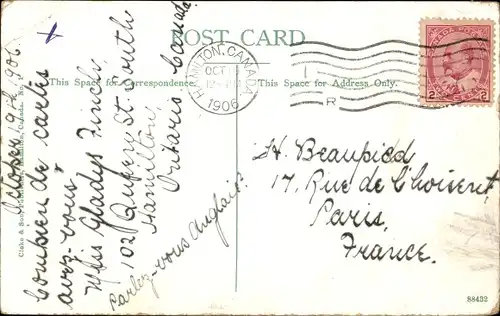 POST CARD
This Space for Correspondence
This Space for Address Only.
HAMILTON, CANADA
OCT
1906
CANADA POSTAGE
2 2
October 9th, 1906
Combien de cartes
avez-vous?
Miss Gladys Finch
102 Queen St. South
Hamilton
Ontario Canada
Parlez-vous Anglais?
H. Beaupied
17, Rue de Choiseul
Paris,
France.
88432